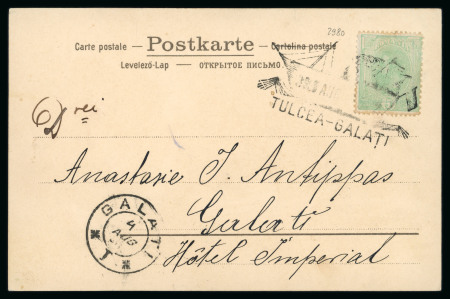 2980
Carte postale - Postkarte - Cartolina postale
Levelező-Lap — ОТКРЫТОЕ ПИСЬМО.
TULCEA-GALAȚI
Anastasie J. Antippas
Galati
Hôtel Imperial
GALATI
4
AUG